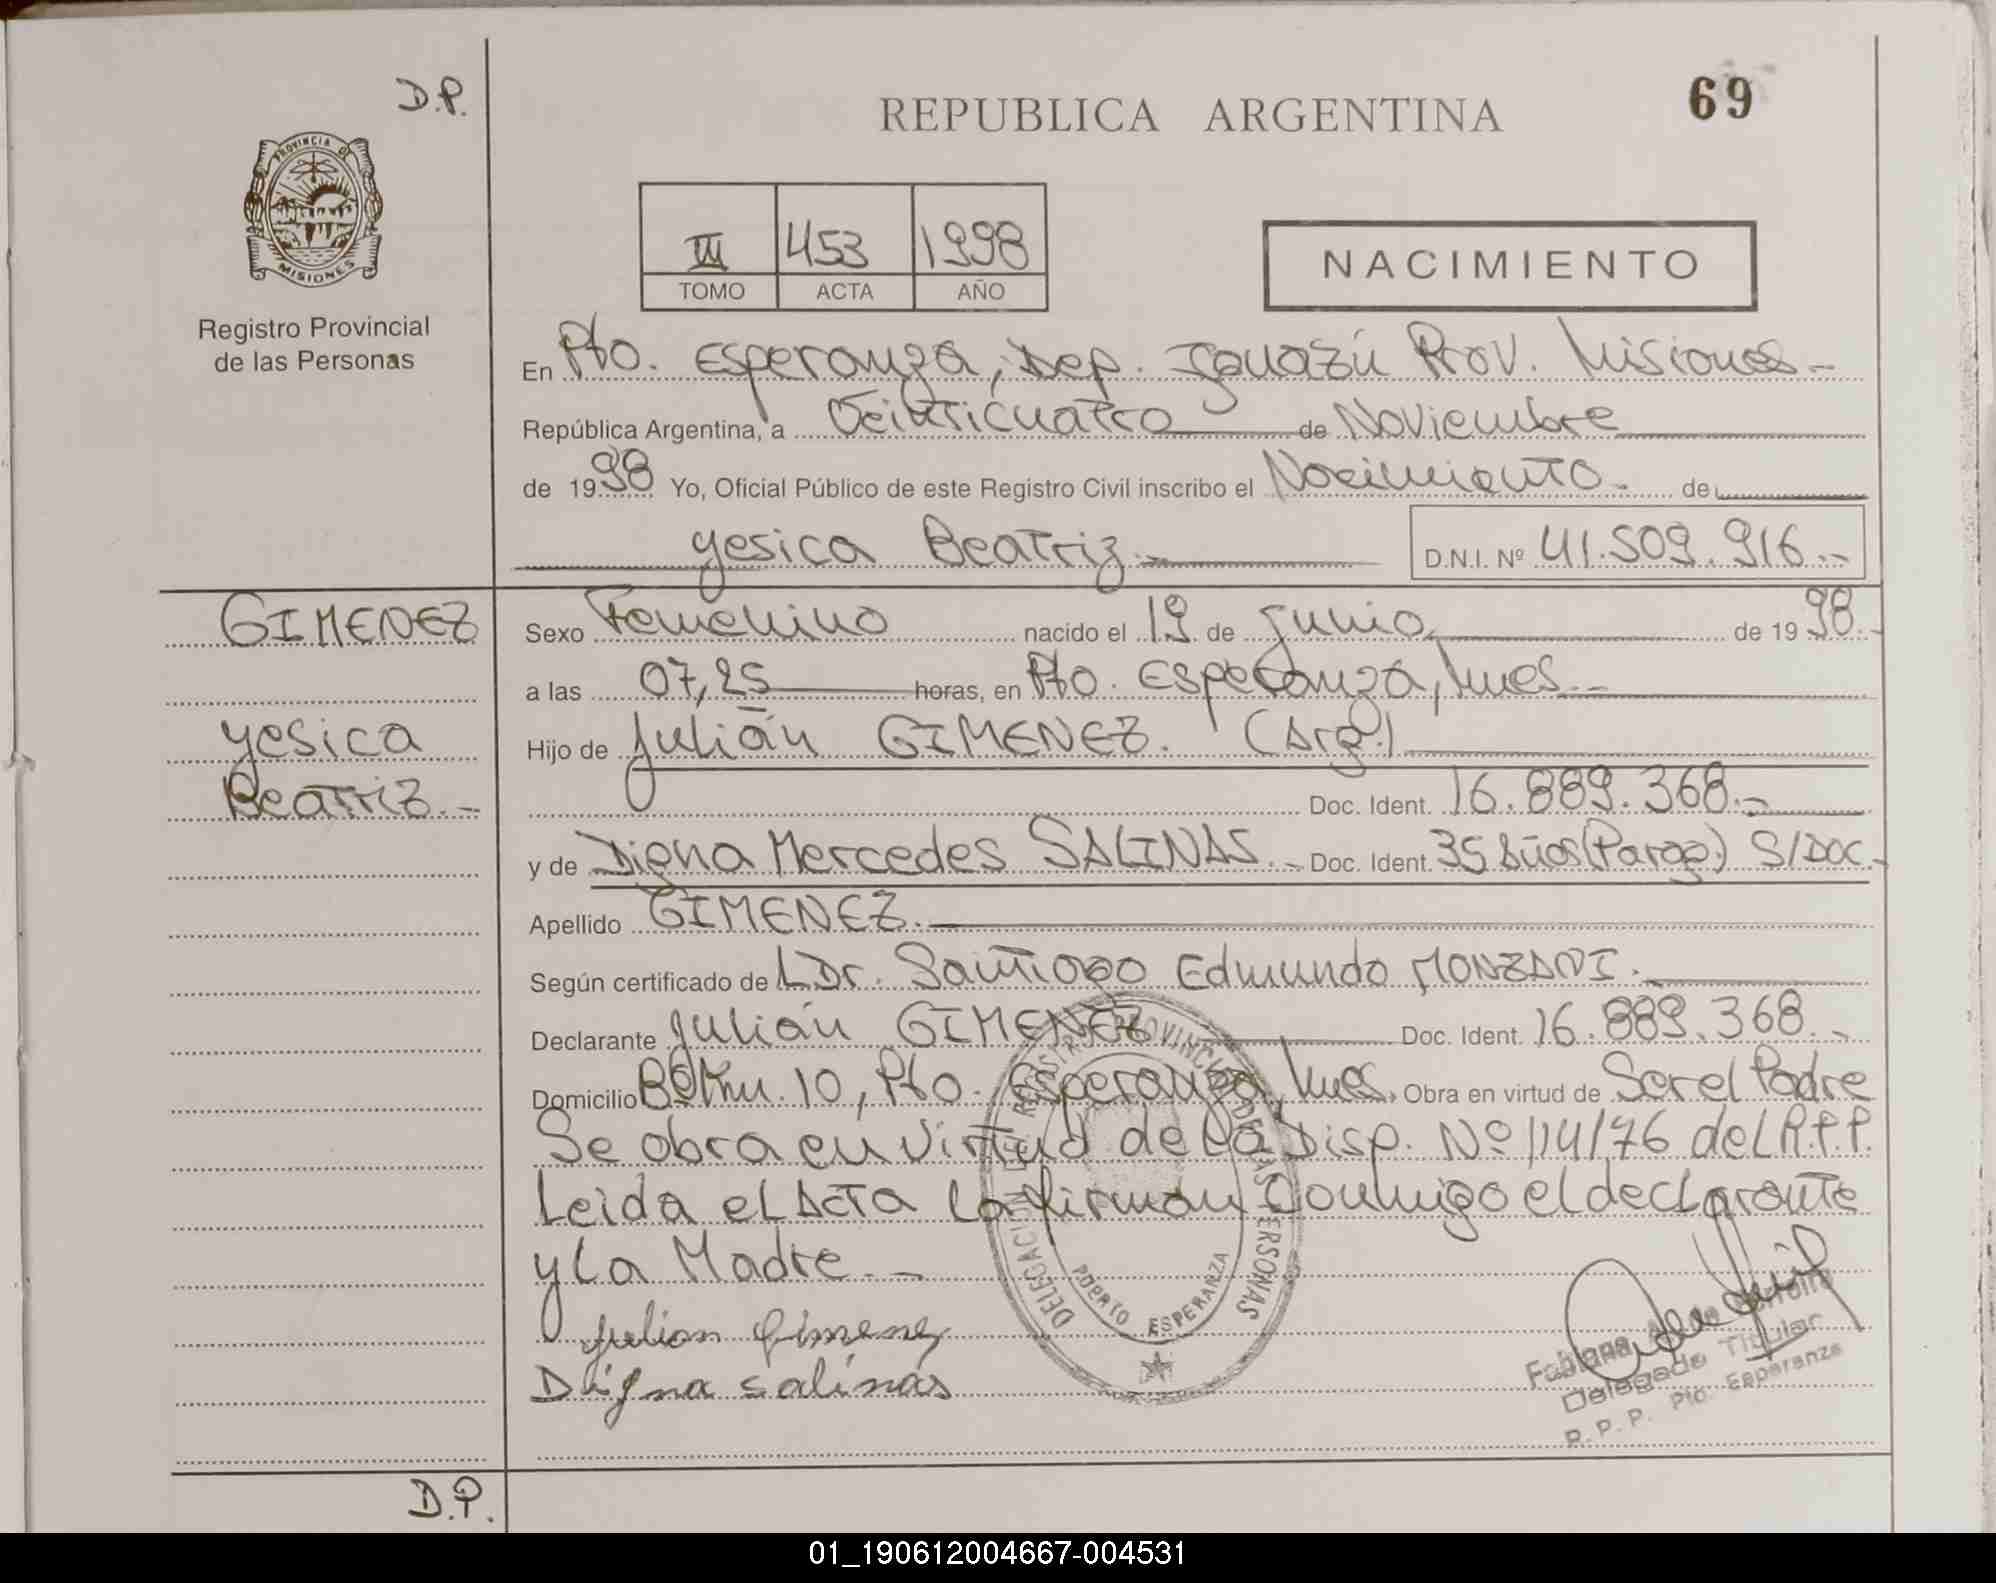 D.P.
REPUBLICA ARGENTINA
69
PROVINCIA DE MISIONES
Registro Provincial
de las Personas
III 453 1998
TOMO ACTA AÑO
NACIMIENTO
En Pto. Esperanza, Dep. Iguazú Prov. Misiones.-
República Argentina, a Veinticuatro de Noviembre
de 1998 Yo, Oficial Público de este Registro Civil inscribo el Nacimiento.- de
yesica Beatriz.-
D.N.I. Nº 41.509.916.-
GIMENEZ
yesica
Beatriz.-
Sexo Femenino nacido el 19 de junio de 1998.-
a las 07,25 horas, en Pto. Esperanza, Mnes.-
Hijo de Julián GIMENEZ. (Arg.)
Doc. Ident. 16.889.368.-
y de Digna Mercedes SALINAS.- Doc. Ident. 35 Años (Parag.) S/DOC.-
Apellido GIMENEZ.
Según certificado de LDr. Santiago Edmundo MONZANI.
Declarante Julián GIMENEZ Doc. Ident. 16.889.368.-
Domicilio Bº Km. 10, Pto. Esperanza, Mnes. Obra en virtud de Ser el Padre
Se obra en virtud de la Disp. Nº 114/76 del R.P.P.
Leida el Acta la firman Conmigo el declarante
y La Madre.-
Julian Gimenez
Digna salinas
DELEGACION REGISTRO PROVINCIAL DE LAS PERSONAS
PUERTO ESPERANZA
Fabiana
Delegado Titular
R.P.P. Pto. Esperanza
D.P.
01_190612004667-004531